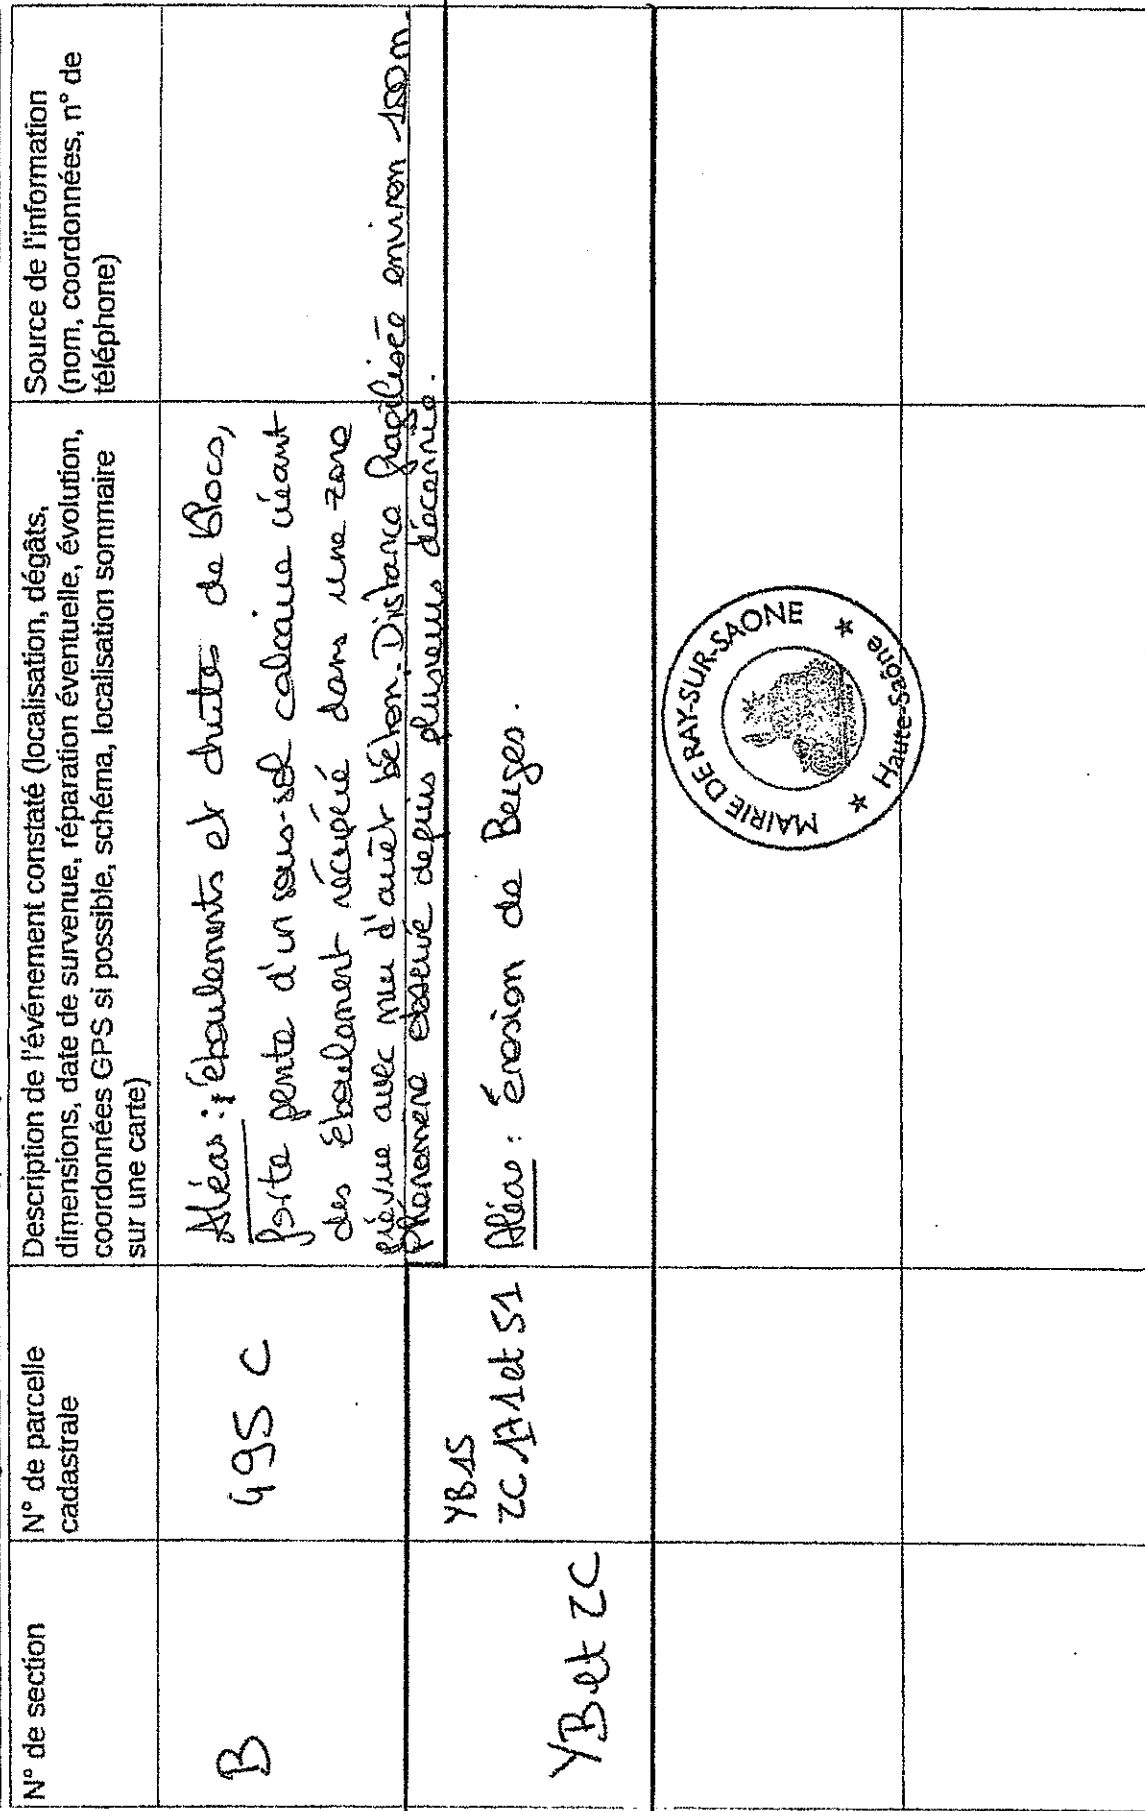 N° de section
N° de parcelle
cadastrale
Description de l'événement constaté (localisation, dégâts,
dimensions, date de survenue, réparation éventuelle, évolution,
coordonnées GPS si possible, schéma, localisation sommaire
sur une carte)
Source de l'information
(nom, coordonnées, n° de
téléphone)
B
495 C
Aléas : éboulements et chutes de Blocs,
forte pente d'un sous-sol calcaire créant
des éboulement récupéré dans une zone
prévue avec mur d'arrêt béton. Distance fragilisée environ m.
Phénomène observé depuis plusieurs décennie.
YB et ZC
YB 15
ZC et 51
Aléas : Érosion de Berges.
MAIRIE DE RAY-SUR-SAONE
★ Haute-Saône ★